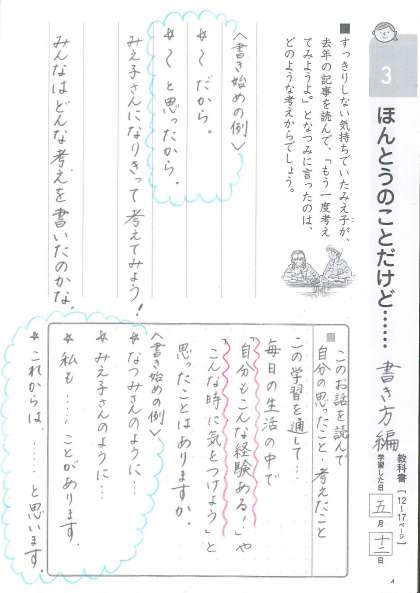 3
ほんとうのことだけど……
書き方編
教科書［12〜17ページ］
学習した日 五月十二日
■すっきりしない気持ちでいたみえ子が、
去年の記事を読んで、「もう一度考え
てみようよ。」となつみに言ったのは、
どのような考えからでしょう。
〈書き始めの例〉
☆〜だから。
☆〜と思ったから。
みえ子さんになりきって考えてみよう！
みんなはどんな考えを書いたのかな。
■このお話を読んで
自分の思ったこと・考えたこと
この学習を通して…
毎日の生活の中で
「自分もこんな経験ある！」や
「こんな時に気をつけよう」と
思ったことはありますか。
〈書き始めの例〉
☆なつみさんのように…
☆みえ子さんのように…
☆私も……ことがあります。
☆これからは、……と思います。
4